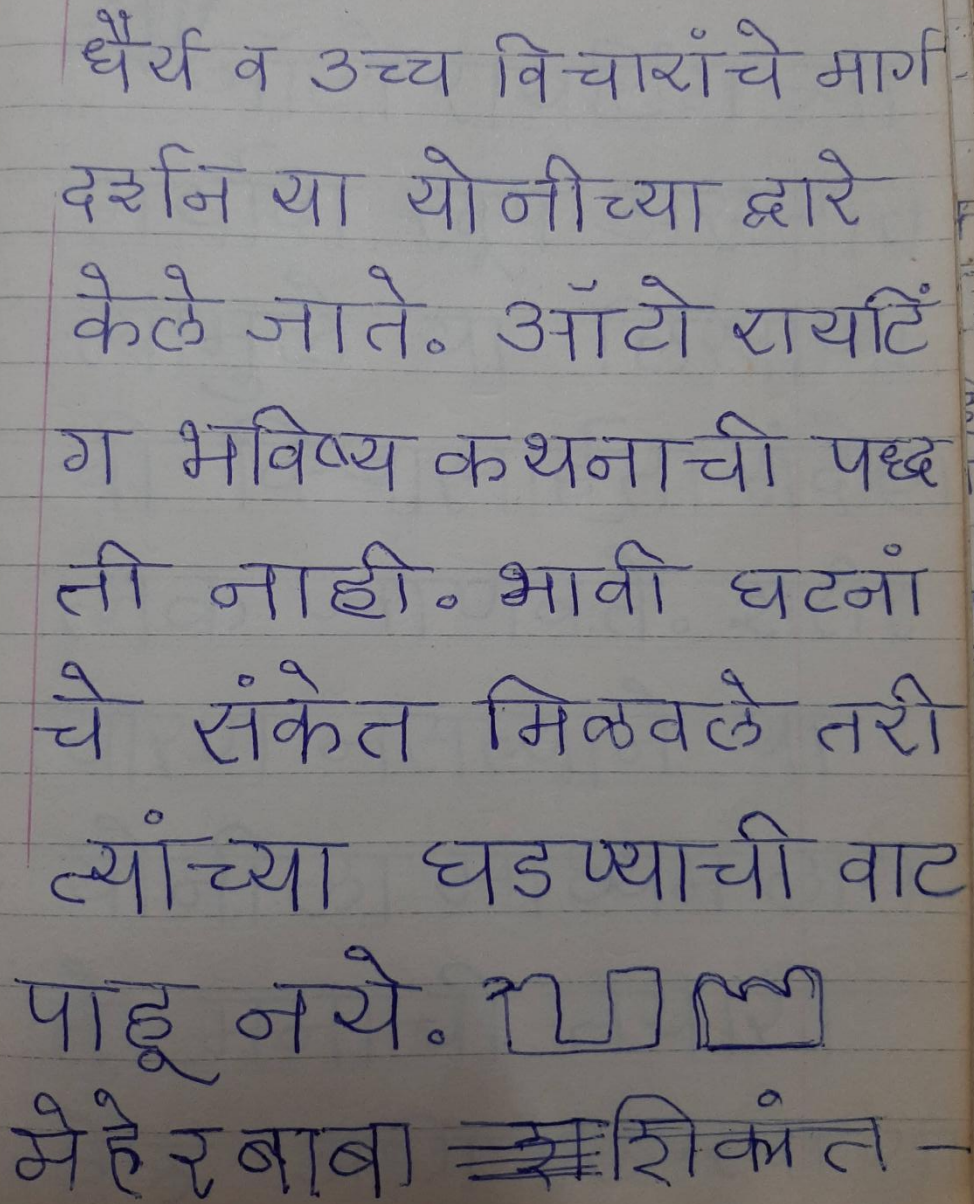 धैर्य व उच्च विचारांचे मार्ग
दर्शन या योनीच्या द्वारे
केले जाते. ऑटो रायटिं
ग भविष्य कथनाची पध्द
ती नाही. भावी घटनां
चे संकेत मिळवले तरी
त्यांच्या घडण्याची वाट
पाहू नये.
मेहेरबाबा शिकांत –